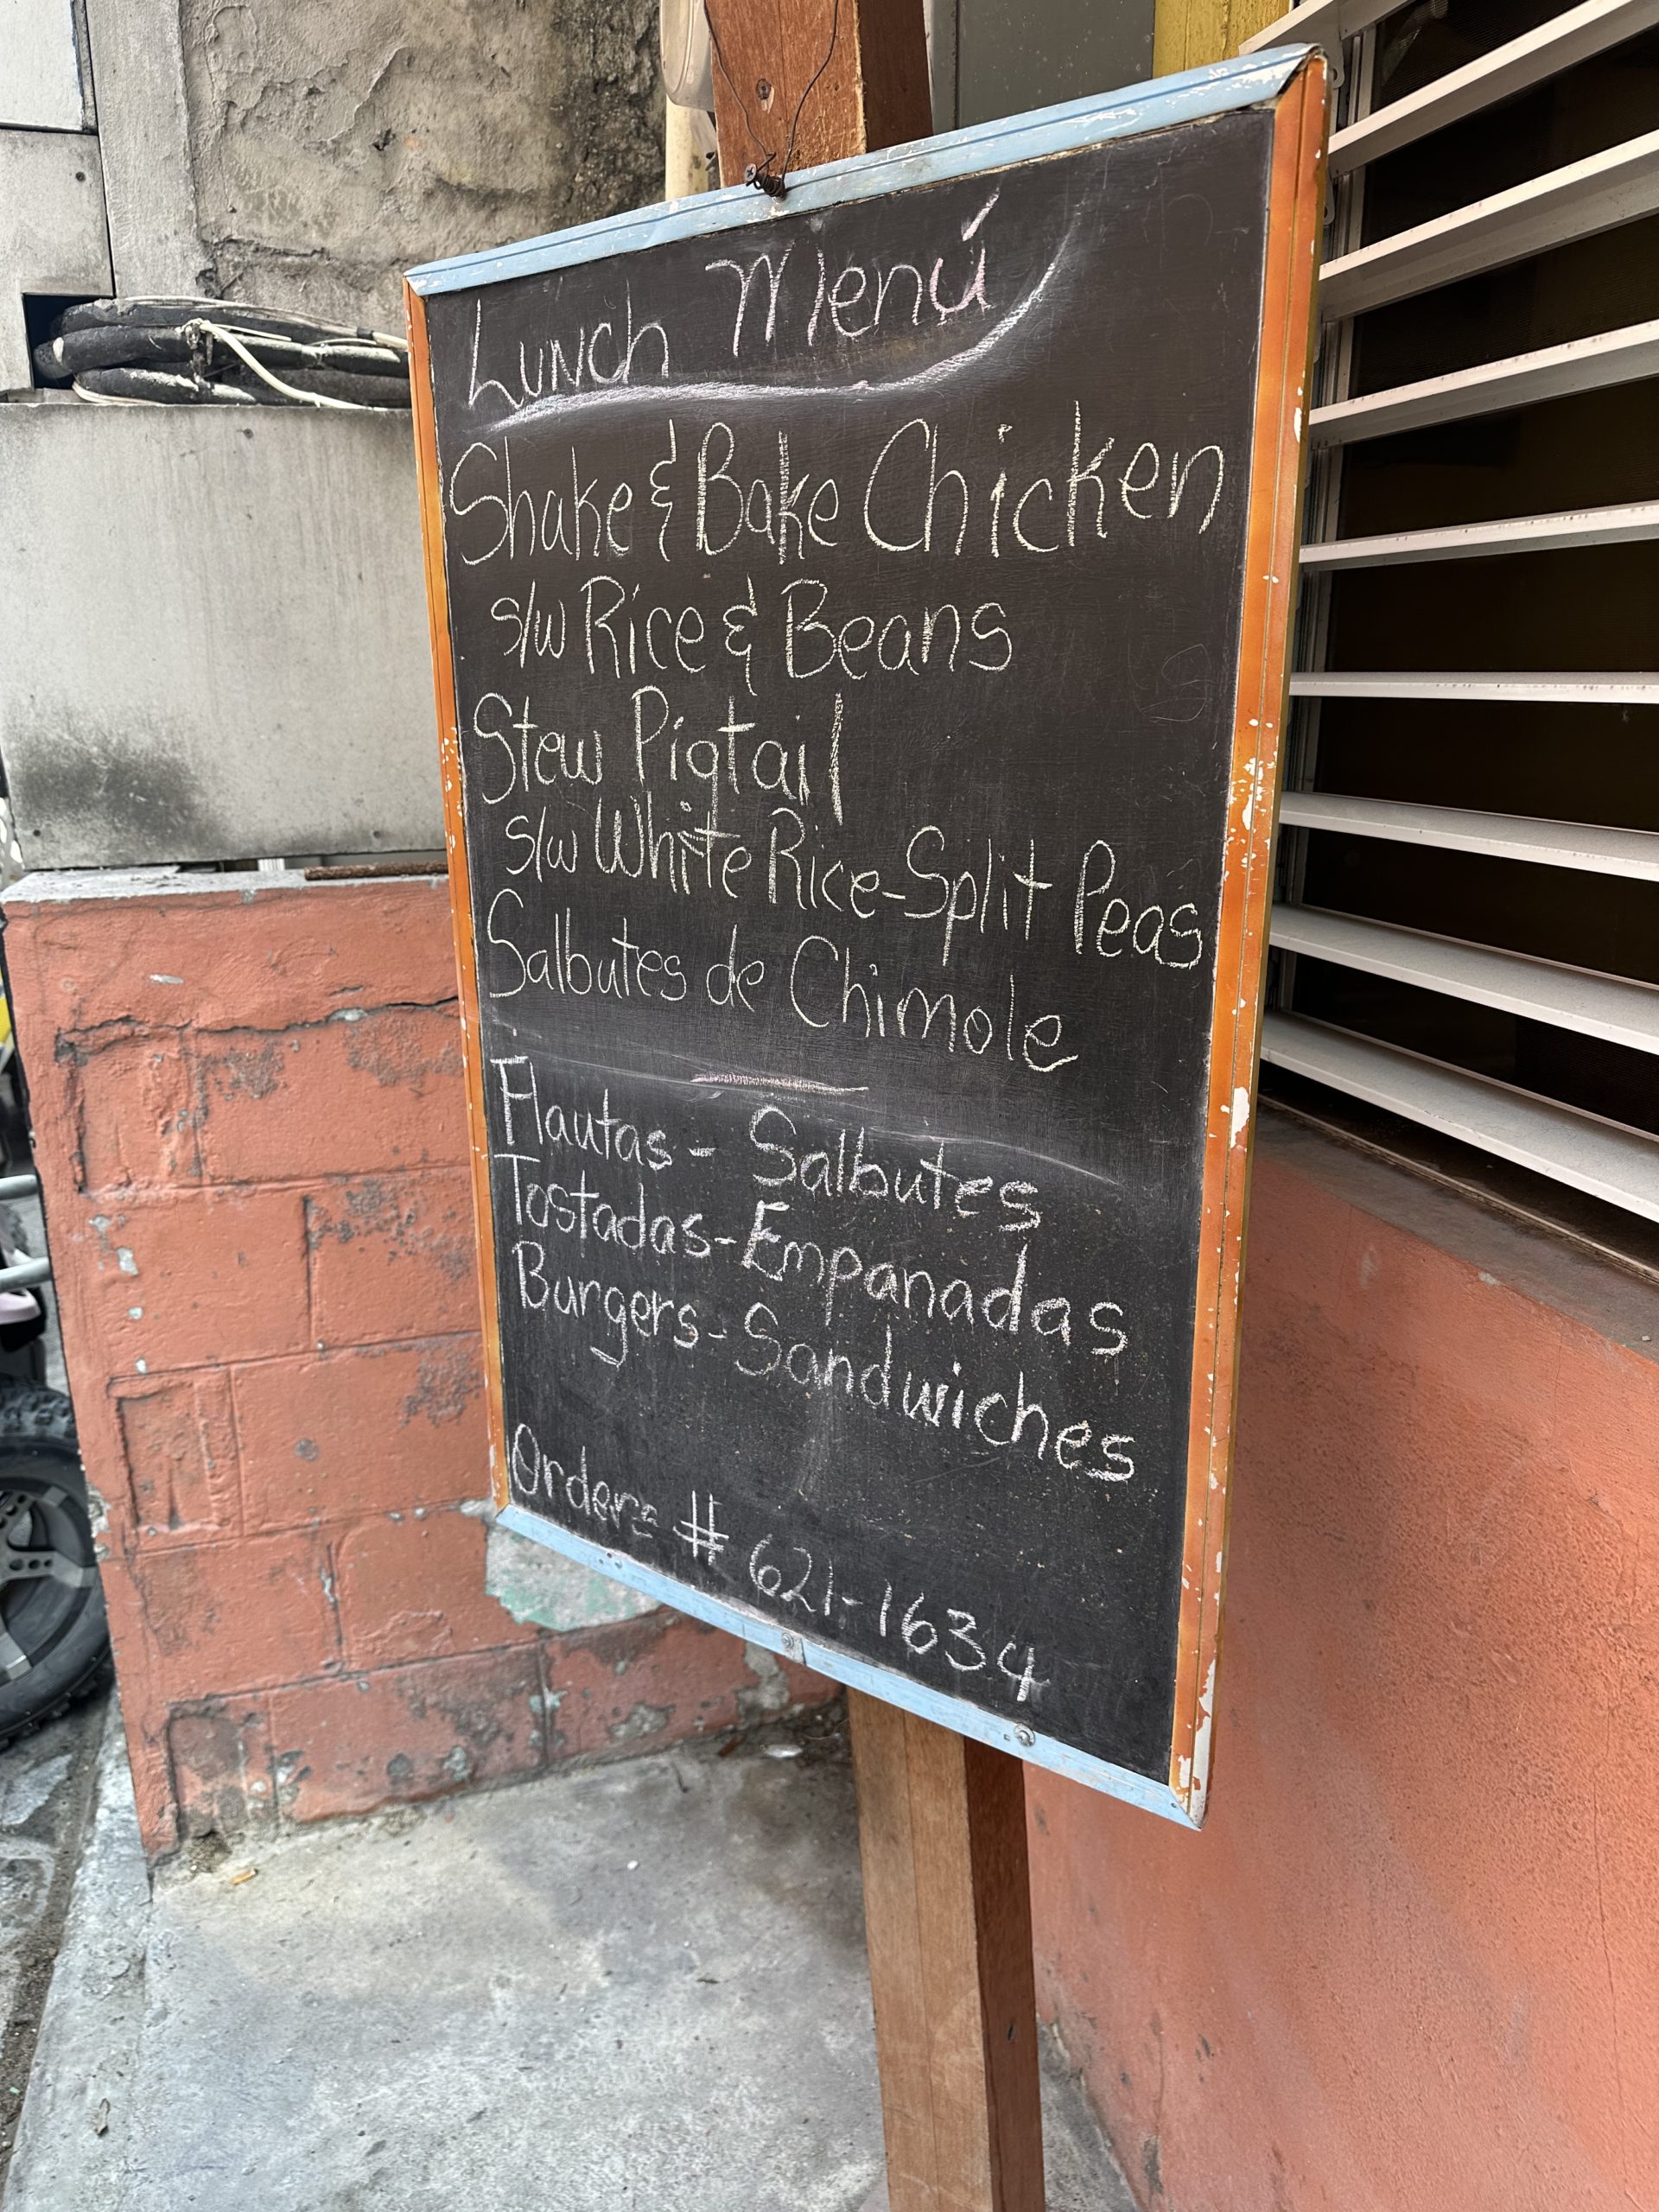 Lunch Menú
Shake & Bake Chicken
s/w Rice & Beans
Stew Pigtail
s/w White Rice-Split Peas
Salbutes de Chimole
Flautas - Salbutes
Tostadas - Empanadas
Burgers - Sandwiches
Orders # 621-1634